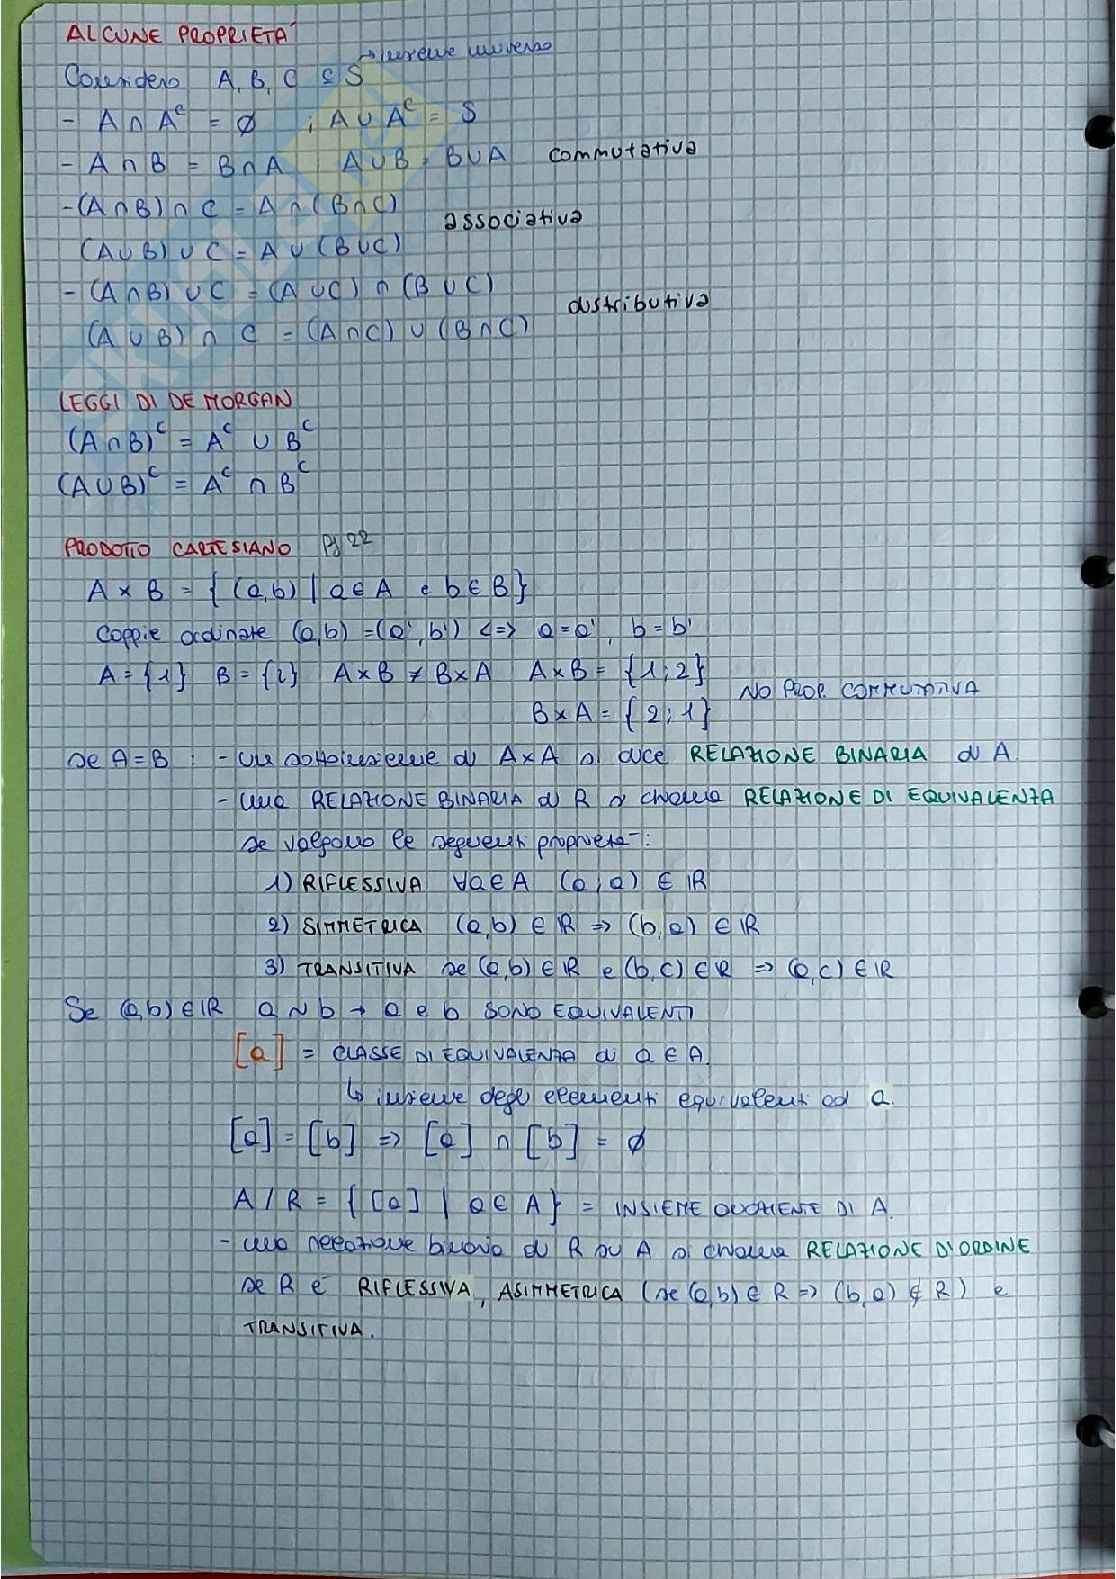 ALCUNE PROPRIETÁ
→ insieme universo
Considero A, B, C ⊆ S
- A ∩ Aᶜ = ∅ , A ∪ Aᶜ = S
- A ∩ B = B ∩ A A ∪ B = B ∪ A commutativa
- (A ∩ B) ∩ C = A ∩ (B ∩ C)
associativa
(A ∪ B) ∪ C = A ∪ (B ∪ C)
- (A ∩ B) ∪ C = (A ∪ C) ∩ (B ∪ C)
distributiva
(A ∪ B) ∩ C = (A ∩ C) ∪ (B ∩ C)
LEGGI DI DE MORGAN
(A ∩ B)ᶜ = Aᶜ ∪ Bᶜ
(A ∪ B)ᶜ = Aᶜ ∩ Bᶜ
PRODOTTO CARTESIANO Pg 22
A × B = { (a,b) | a ∈ A e b ∈ B }
Coppie ordinate (a,b) = (a', b') <=> a = a', b = b'
A = {1} B = {2} A × B ≠ B × A A × B = {1; 2}
NO PROP. COMMUTATIVA
B × A = {2; 1}
se A = B : - un sottoinsieme di A × A si dice RELAZIONE BINARIA di A.
- una RELAZIONE BINARIA di R si chiama RELAZIONE DI EQUIVALENZA
se valgono le seguenti proprietà:
1) RIFLESSIVA ∀a ∈ A (a; a) ∈ ℝ
2) SIMMETRICA (a,b) ∈ ℝ => (b,a) ∈ ℝ
3) TRANSITIVA se (a,b) ∈ ℝ e (b,c) ∈ ℝ => (a,c) ∈ ℝ
Se (a,b) ∈ ℝ a ~ b → a e b SONO EQUIVALENTI
[a] = CLASSE DI EQUIVALENZA di a ∈ A.
↳ insieme degli elementi equivalenti ad a.
[a] = [b] => [a] ∩ [b] = ∅
A / R = { [a] | a ∈ A } = INSIEME QUOZIENTE DI A.
- una relazione binaria di R su A si chiama RELAZIONE D'ORDINE
se R é RIFLESSIVA, ASIMMETRICA (se (a,b) ∈ R => (b,a) ∉ R) e
TRANSITIVA.